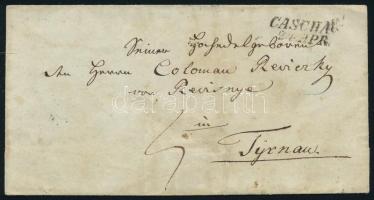 CASCHAU
24 APR.
Seiner Hochedelgeboren
An Herrn Coloman Reviczky
von Revisnye
in
Tyrnau.
darabanth